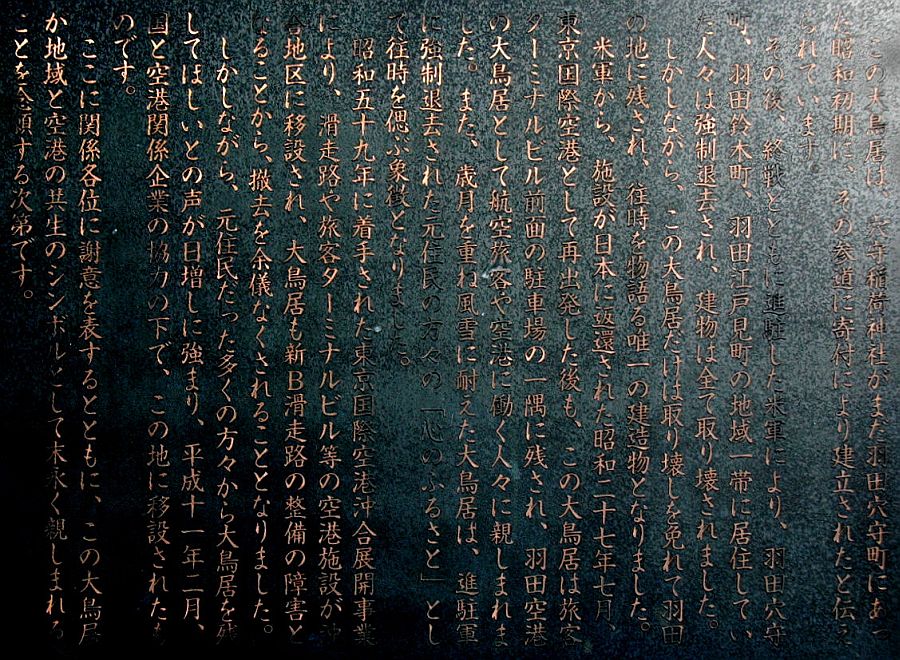 この大鳥居は、穴守稲荷神社がまだ羽田穴守町にあっ
た昭和初期に、その参道に寄付により建立されたと伝え
られています。
その後、終戦とともに進駐した米軍により、羽田穴守
町、羽田鈴木町、羽田江戸見町の地域一帯に居住してい
た人々は強制退去され、建物は全て取り壊されました。
しかしながら、この大鳥居だけは取り壊しを免れて羽田
の地に残され、往時を物語る唯一の建造物となりました。
米軍から、施設が日本に返還された昭和二十七年七月、
東京国際空港として再出発した後も、この大鳥居は旅客
ターミナルビル前面の駐車場の一隅に残され、羽田空港
の大鳥居として航空旅客や空港に働く人々に親しまれま
した。また、歳月を重ね風雪に耐えた大鳥居は、進駐軍
に強制退去された元住民の方々の「心のふるさと」とし
て往時を偲ぶ象徴となりました。
昭和五十九年に着手された東京国際空港沖合展開事業
により、滑走路や旅客ターミナルビル等の空港施設が沖
合地区に移設され、大鳥居も新B滑走路の整備の障害と
なることから、撤去を余儀なくされることとなりました。
しかしながら、元住民だった多くの方々から大鳥居を残
してほしいとの声が日増しに強まり、平成十一年二月、
国と空港関係企業の協力の下で、この地に移設されたも
のです。
ここに関係各位に謝意を表するとともに、この大鳥居
が地域と空港の共生のシンボルとして末永く親しまれる
ことを念願する次第です。